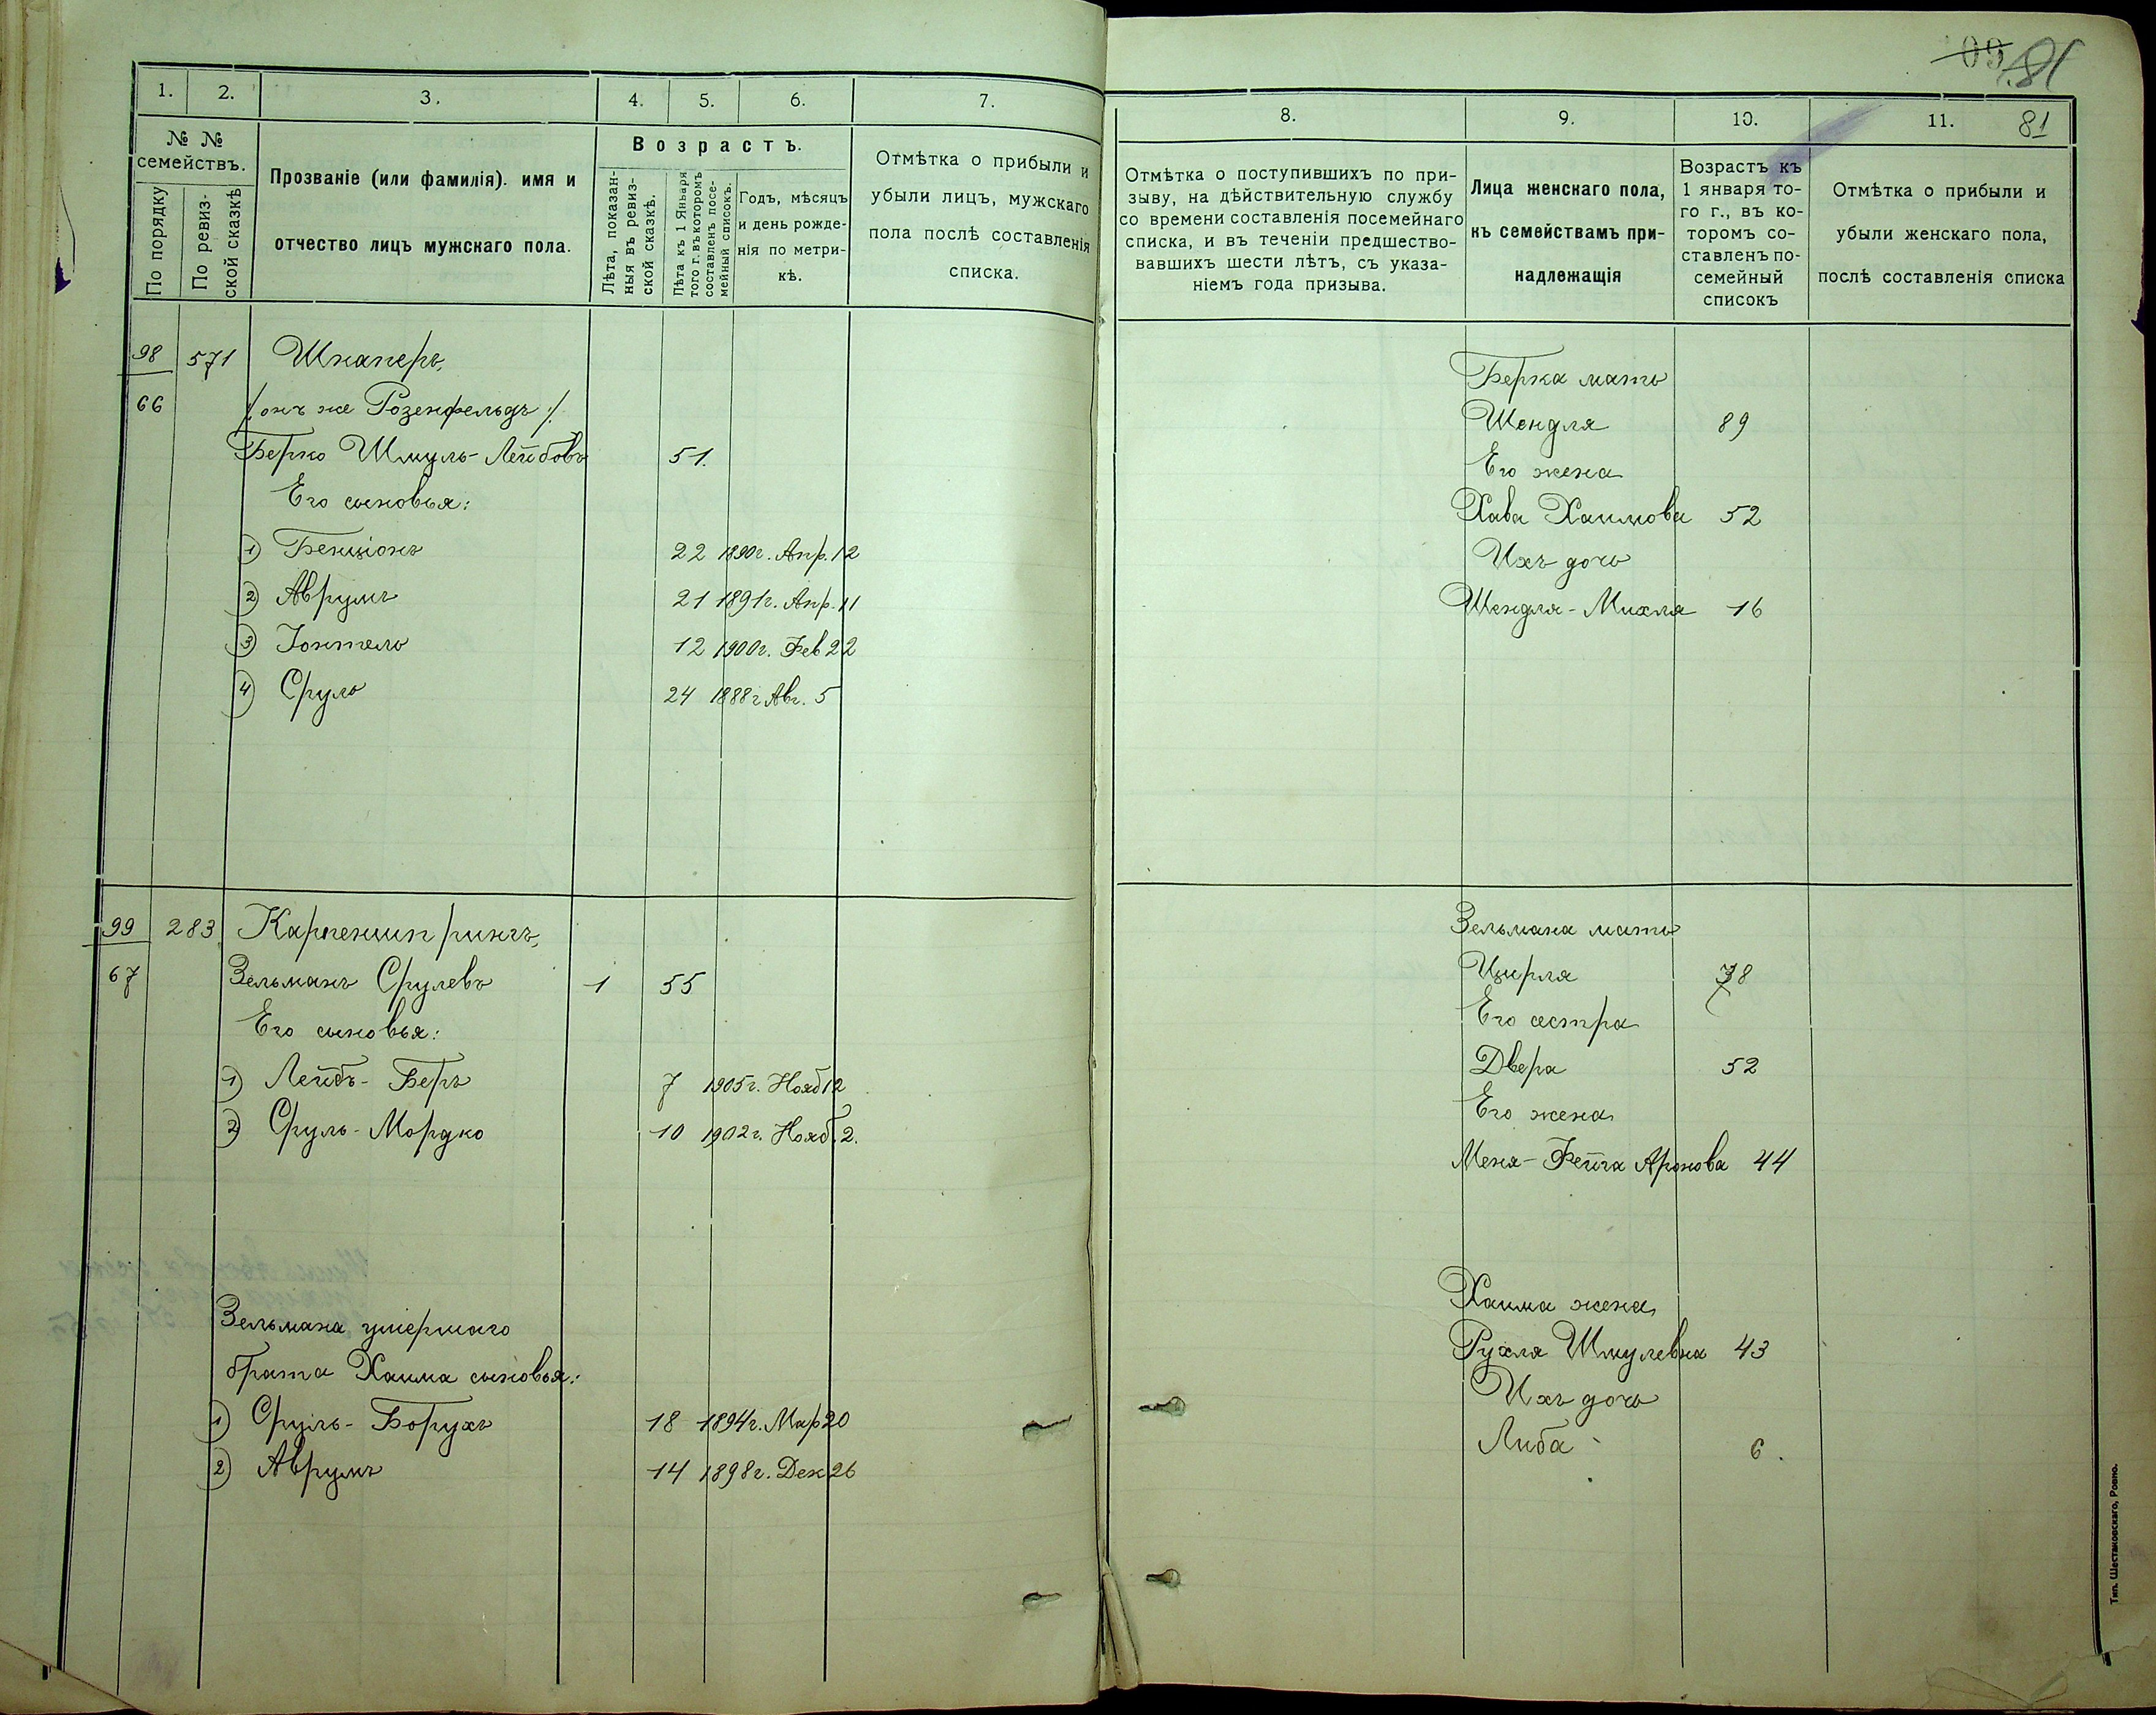 1. 2. 3. 4. 5. 6. 7.
№ № семействъ.
По порядку
По ревиз-
ской сказкѣ
Прозваніе (или фамилія). имя и
отчество лицъ мужскаго пола.
Возрастъ.
Лѣта, показан-
ныя въ ревиз-
ской сказкѣ.
Лѣта къ 1 Января
того г. въ которомъ
составленъ посе-
мейный списокъ.
Годъ, мѣсяцъ
и день рожде-
нія по метри-
кѣ.
Отмѣтка о прибыли и
убыли лицъ, мужскаго
пола послѣ составленія
списка.
98 571 Шнаперъ,
66 /онъ же Розенфельдъ/.
Берко Шмуль-Лейбовъ 51.
Его сыновья:
1) Бенціонъ 22 1890г. Апр. 12
2) Аврумъ 21 1891г. Апр. 11
3) Іонтель 12 1900г. Фев 22
4) Сруль 24 1888г Авг. 5
99 283
67 Зельманъ Срулевъ 1 55
Его сыновья:
1) Лейбъ-Беръ 7 1905г. Нояб 12
2) Сруль-Мордко 10 1902г. Нояб. 2.
Зельмана умершаго
брата Хаима сыновья:
1) Сруль-Борухъ 18 1894г. Мар 20
2) Аврумъ 14 1898г. Дек 26
09 81
8. 9. 10. 11. 81
Отмѣтка о поступившихъ по при-
зыву, на дѣйствительную службу
со времени составленія посемейнаго
списка, и въ теченіи предшество-
вавшихъ шести лѣтъ, съ указа-
ніемъ года призыва.
Лица женскаго пола,
къ семействамъ при-
надлежащія
Возрастъ къ
1 января то-
го г., въ ко-
торомъ со-
ставленъ по-
семейный
списокъ
Отмѣтка о прибыли и
убыли женскаго пола,
послѣ составленія списка
Берка мать
Шендля 89
Его жена
Хава Хаимова 52
Ихъ дочь
Шендля-Михля 16
Зельмана мать
Цирля 78
Его сестра
Двера 52
Его жена
Меня-Фейга Аронова 44
Хаима жена
Рухля Шмулевна 43
Ихъ дочь
Либа 6.
Тип. Шестаковскаго, Ровно.